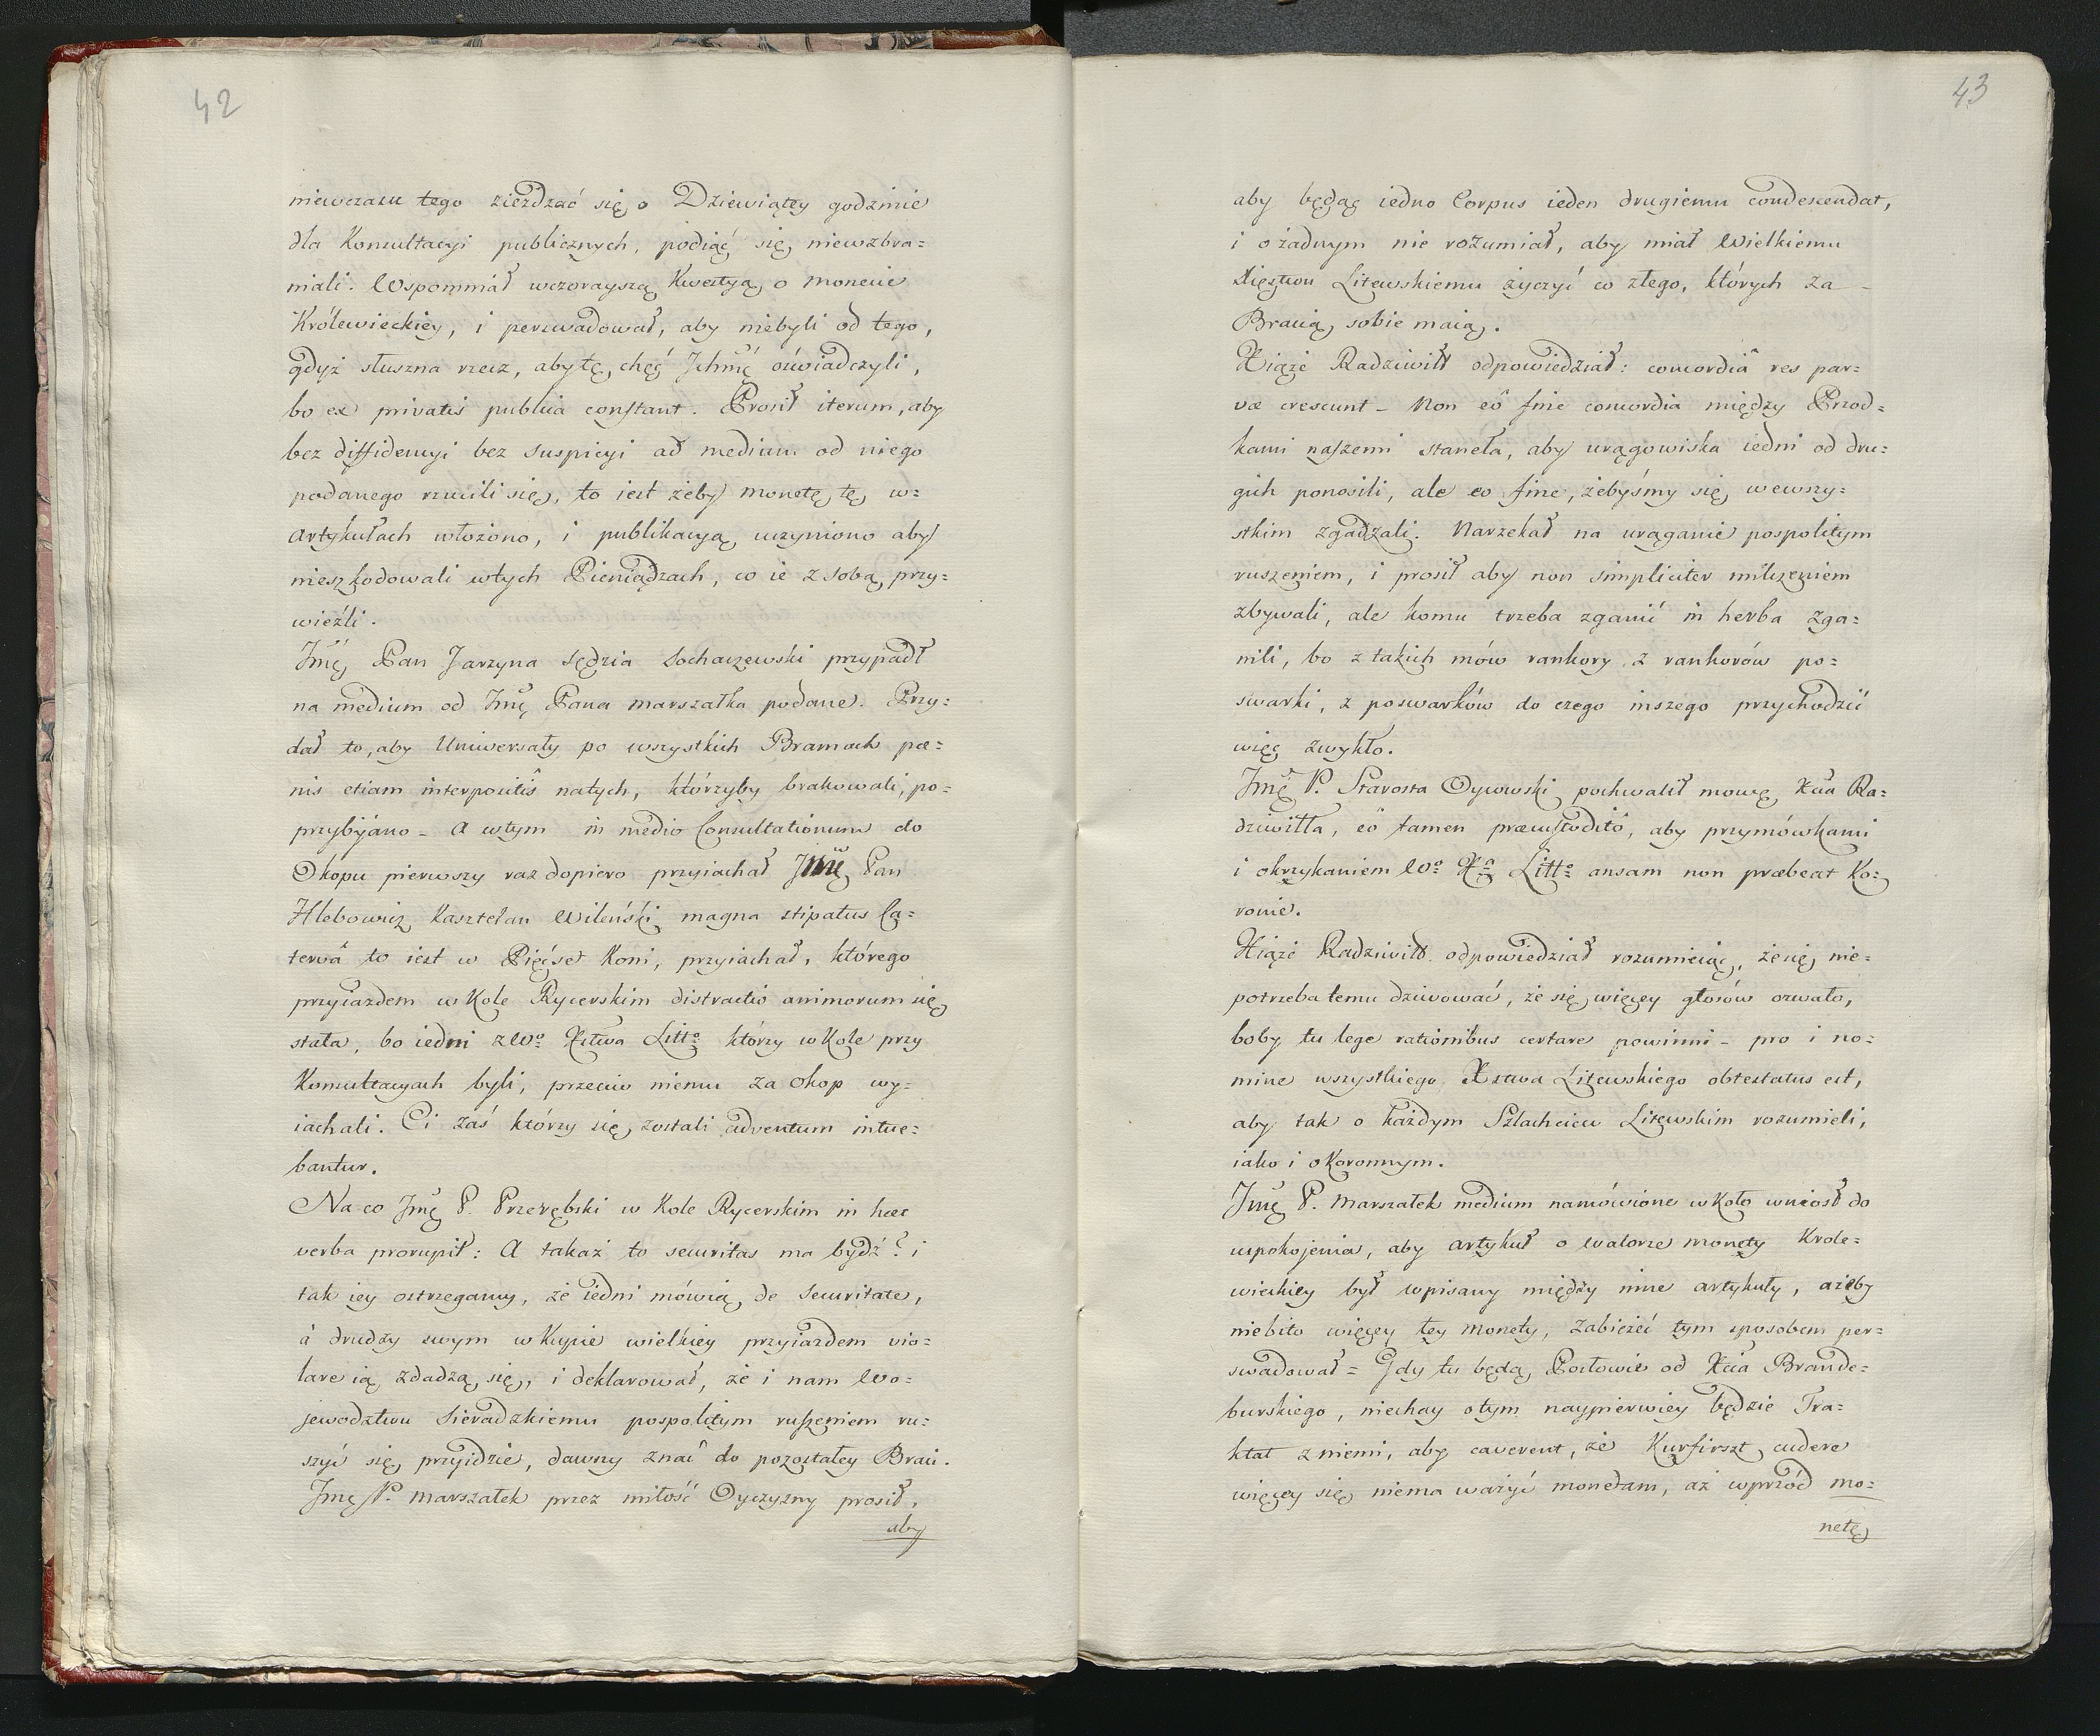 42
niewczasu tego zieżdzać się o Dziewiątey godzinie
dla Konsultacyi publicznych, podiąć się niewzbra=
niali. Wspomniał wczorayszą Kwestyą o monecie
Królewieckiey, i perswadował, aby niebyli od tego,
gdyż słuszna rzecz, aby tę chęć Ichmć oświadczyli,
bo ex privatis publica constant. Prosił iterum, aby
bez diffidencyi bez suspicyi ad medium od niego
podanego rzucili się, to iest żeby monetę tę w=
artykułach włożono, i publikacyą uczyniono aby
nieszkodowali wtych Pieniądzach, co ie z sobą przy=
wieźli.
Jmć Pan Jarzyna Sędzia Sochaczewski przypadł
na medium od Jmć Pana marszałka podane. Przy=
dał to, aby Uniwersały po wszystkich Bramach pæ=
nis etiam interpositis natych, którzyby brakowali, po=
przybijano – a wtym in medio Consultationum do
Okopu pierwszy raz dopiero przyiachał Jmć Pan
Hlebowicz Kasztelan Wileński magna stipatus Ca=
tervâ to iest w Pięćset Koni, przyiachał, którego
przyiazdem w Kole Rycerskim distractio animorum się
stała, bo iedni z Wo Xstwa Litto którzy w Kole przy
Konsultacyach byli, przeciw niemu za okop wy=
iachali. Ci zaś którzy się zostali adventum intue=
bantur.
Na co Jmć P. Przerębski w Kole Rycerskim in hæc
verba prorupit: A takaż to securitas ma bydź? i
tak iey ostrzegamy, że iedni mówią de securitate,
á drudzy swym w Kupie wielkiey przyiazdem vio=
lare ią zdadzą się, i deklarował, że i nam Wo=
jewodztwu Sieradzkiemu pospolitym ruszeniem ru=
szyć się przyidzie, dawszy znać do pozostałey Braci.
Jmć P. marszałek przez miłość Oyczyzny prosił,
aby
43
aby będąc iedno Corpus ieden drugiemu condescendat,
i o żadnym nie rozumiał, aby miał Wielkiemu
Xięstwu Litewskiemu życzyć co złego, których za
Bracią sobie maią.
Xiąże Radziwiłł odpowiedział: concordiâ res par=
væ crescunt – Non eô fine concordia między Przod=
kami naszemi staneła, aby urągowiska iedni od dru=
gich ponosili, ale eo fine, żebyśmy się wewszy=
stkim zgadzali. Narzekał na urąganie pospolitym
ruszeniem, i prosił aby non simpliciter milczeniem
zbywali, ale komu trzeba zganić in herba zga=
nili, bo z takich mów rankory z rankorów po=
swarki, z poswarków do czego inszego przychodzić
więc zwykło.
Jmć P. Starosta Oycowski pochwalił mowę Xcia Ra=
dziwiłła, eô tamen præcustoditô, aby przymówkami
i okrzykaniem Wo Xa Litto ansam non præbeat Ko=
ronie.
Xiąże Radziwiłł odpowiedział rozumieiąc, że się nie=
potrzeba temu dziwować, że się więcey głosów ozwało,
boby tu lege rationibus certare powinni – pro i no=
mine wszystkiego Xstwa Litewskiego obtestatus est,
aby tak o każdym Szlachcicu Litewskim rozumieli,
iako i o Koronnym.
Jmć P. marszałek medium namówione w Koło wniosł do
uspokojenia, aby artykuł o walorze monety Krole=
wieckiey był wpisany między inne artykuły, ażeby
niebito więcey tey monety, zabieżeć tym sposobem per=
swadował = Gdy tu będą Posłowie od Xcia Brande=
burskiego, niechay o tym naypierwiey będzie Tra=
ktat z niemi, aby caverent, że Kurfirszt cudere
więcey się niema ważyć monetam, aż wprzód mo=
netę